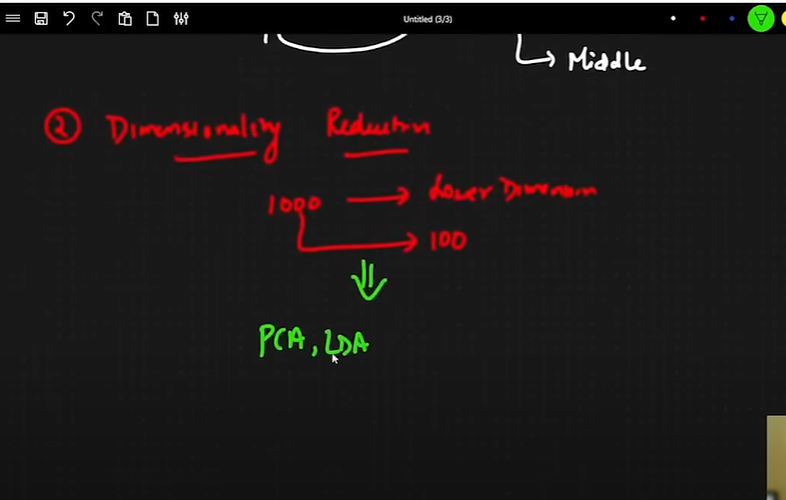 Untitled (3/3)
Middle
② Dimensionality Reduction
1000 → Lower Dimension
→ 100
⇓
PCA, LDA